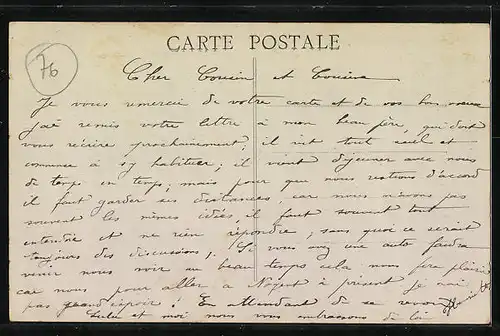 76
CARTE POSTALE
Cher Cousin et Cousine
Je vous remercie de votre carte et de vos bons voeux
j'ai remis votre lettre à mon beau père, qui doit
vous écrire prochainement; il vit tout seul et
commence à s'y habituer; il vient déjeuner avec nous
de temps en temps; mais pour que nous restions d'accord
il faut garder ses distances, car nous n'avons pas
souvent les mêmes idées, il faut souvent tout
entendre et ne rien répondre, sans quoi ce serait
toujours des discussions; Si vous avez une auto faudra
venir nous voir au beau temps cela nous fera plaisir
car nous pour aller à Nogent à présent je n'ai
pas grand espoir! En attendant de se revoir
Lulu et moi nous vous embrassons de loin